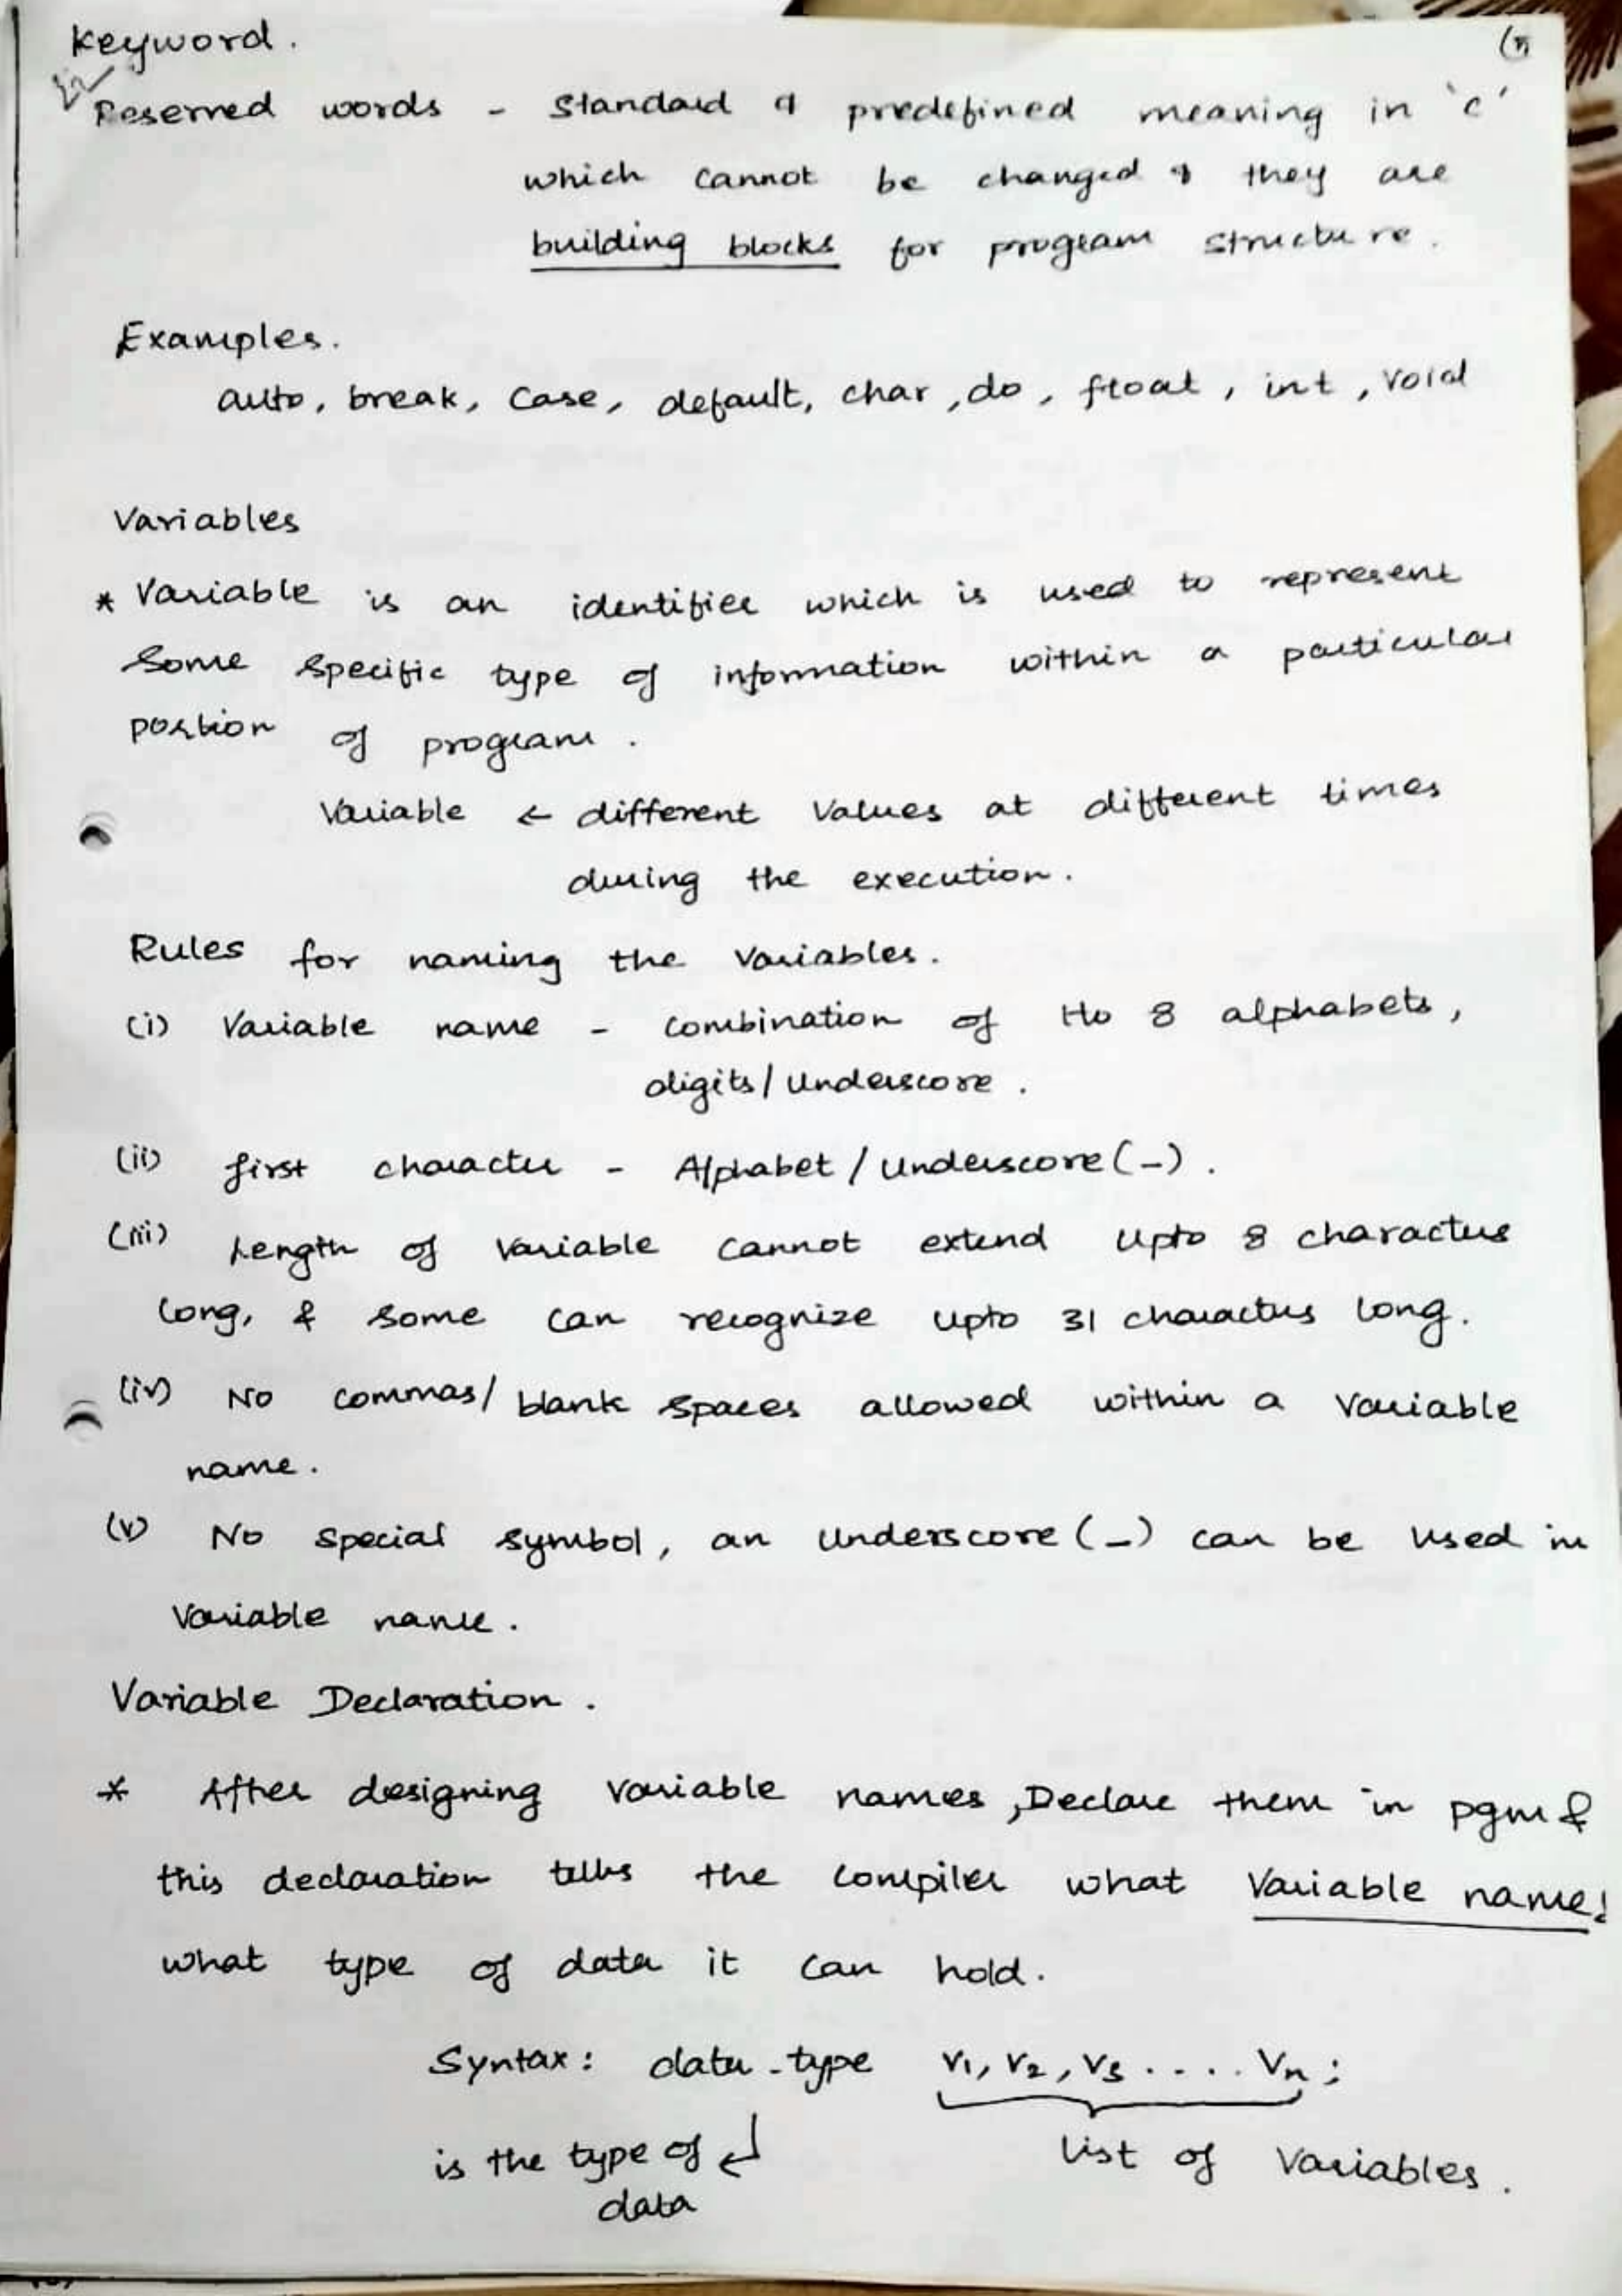 Keyword.
Reserved words - Standard & predefined meaning in 'c'
which cannot be changed & they are
building blocks for program structure.
Examples.
auto, break, Case, default, char, do, float, int, void
Variables
* Variable is an identifier which is used to represent
Some specific type of information within a particular
portion of program.
Variable ← different Values at different times
during the execution.
Rules for naming the variables.
(i) Variable name - combination of 1to 8 alphabets,
digits/underscore.
(ii) first character - Alphabet/underscore(_).
(iii) Length of variable cannot extend upto 8 characters
long, & some can recognize upto 31 characters long.
(iv) No commas/blank spaces allowed within a variable
name.
(v) No special symbol, an underscore(_) can be used in
variable name.
Variable Declaration.
* After designing variable names, Declare them in pgm &
this declaration tells the compiler what variable name,
what type of data it can hold.
Syntax: data-type v1, v2, v3 .... vn;
is the type of ↲ List of variables.
data